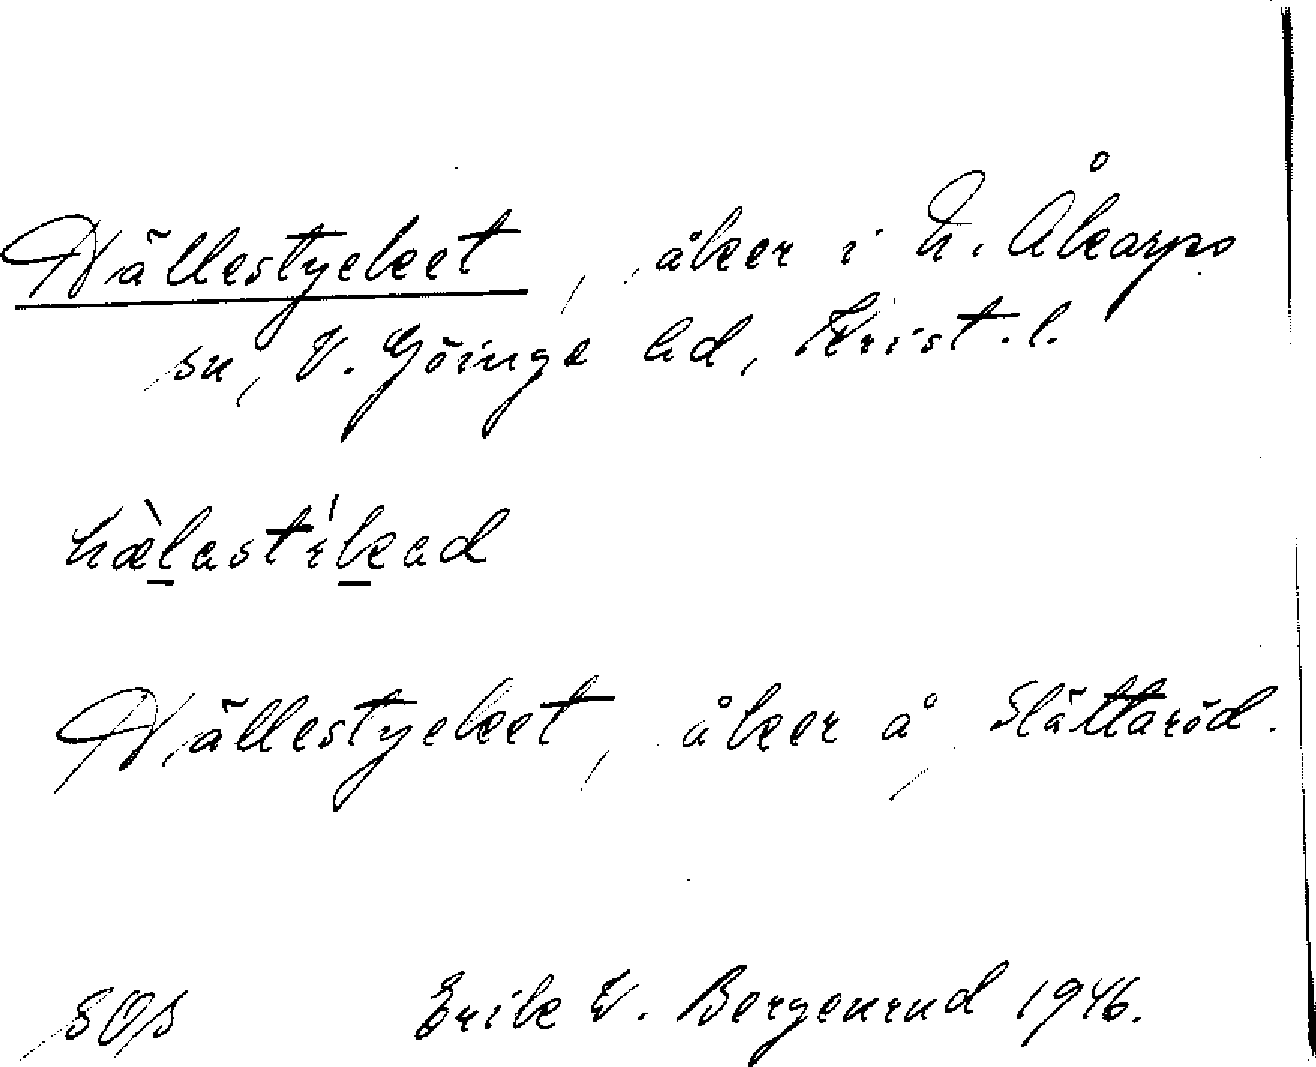 Hällestycket, åker i N. Åkarps
sn, V. Göinge hd, Krist. l.
hæ̀l̲astýk̲ad
Hällestycket, åker å Slättaröd.
SOS Erik W. Bergenrud 1946.